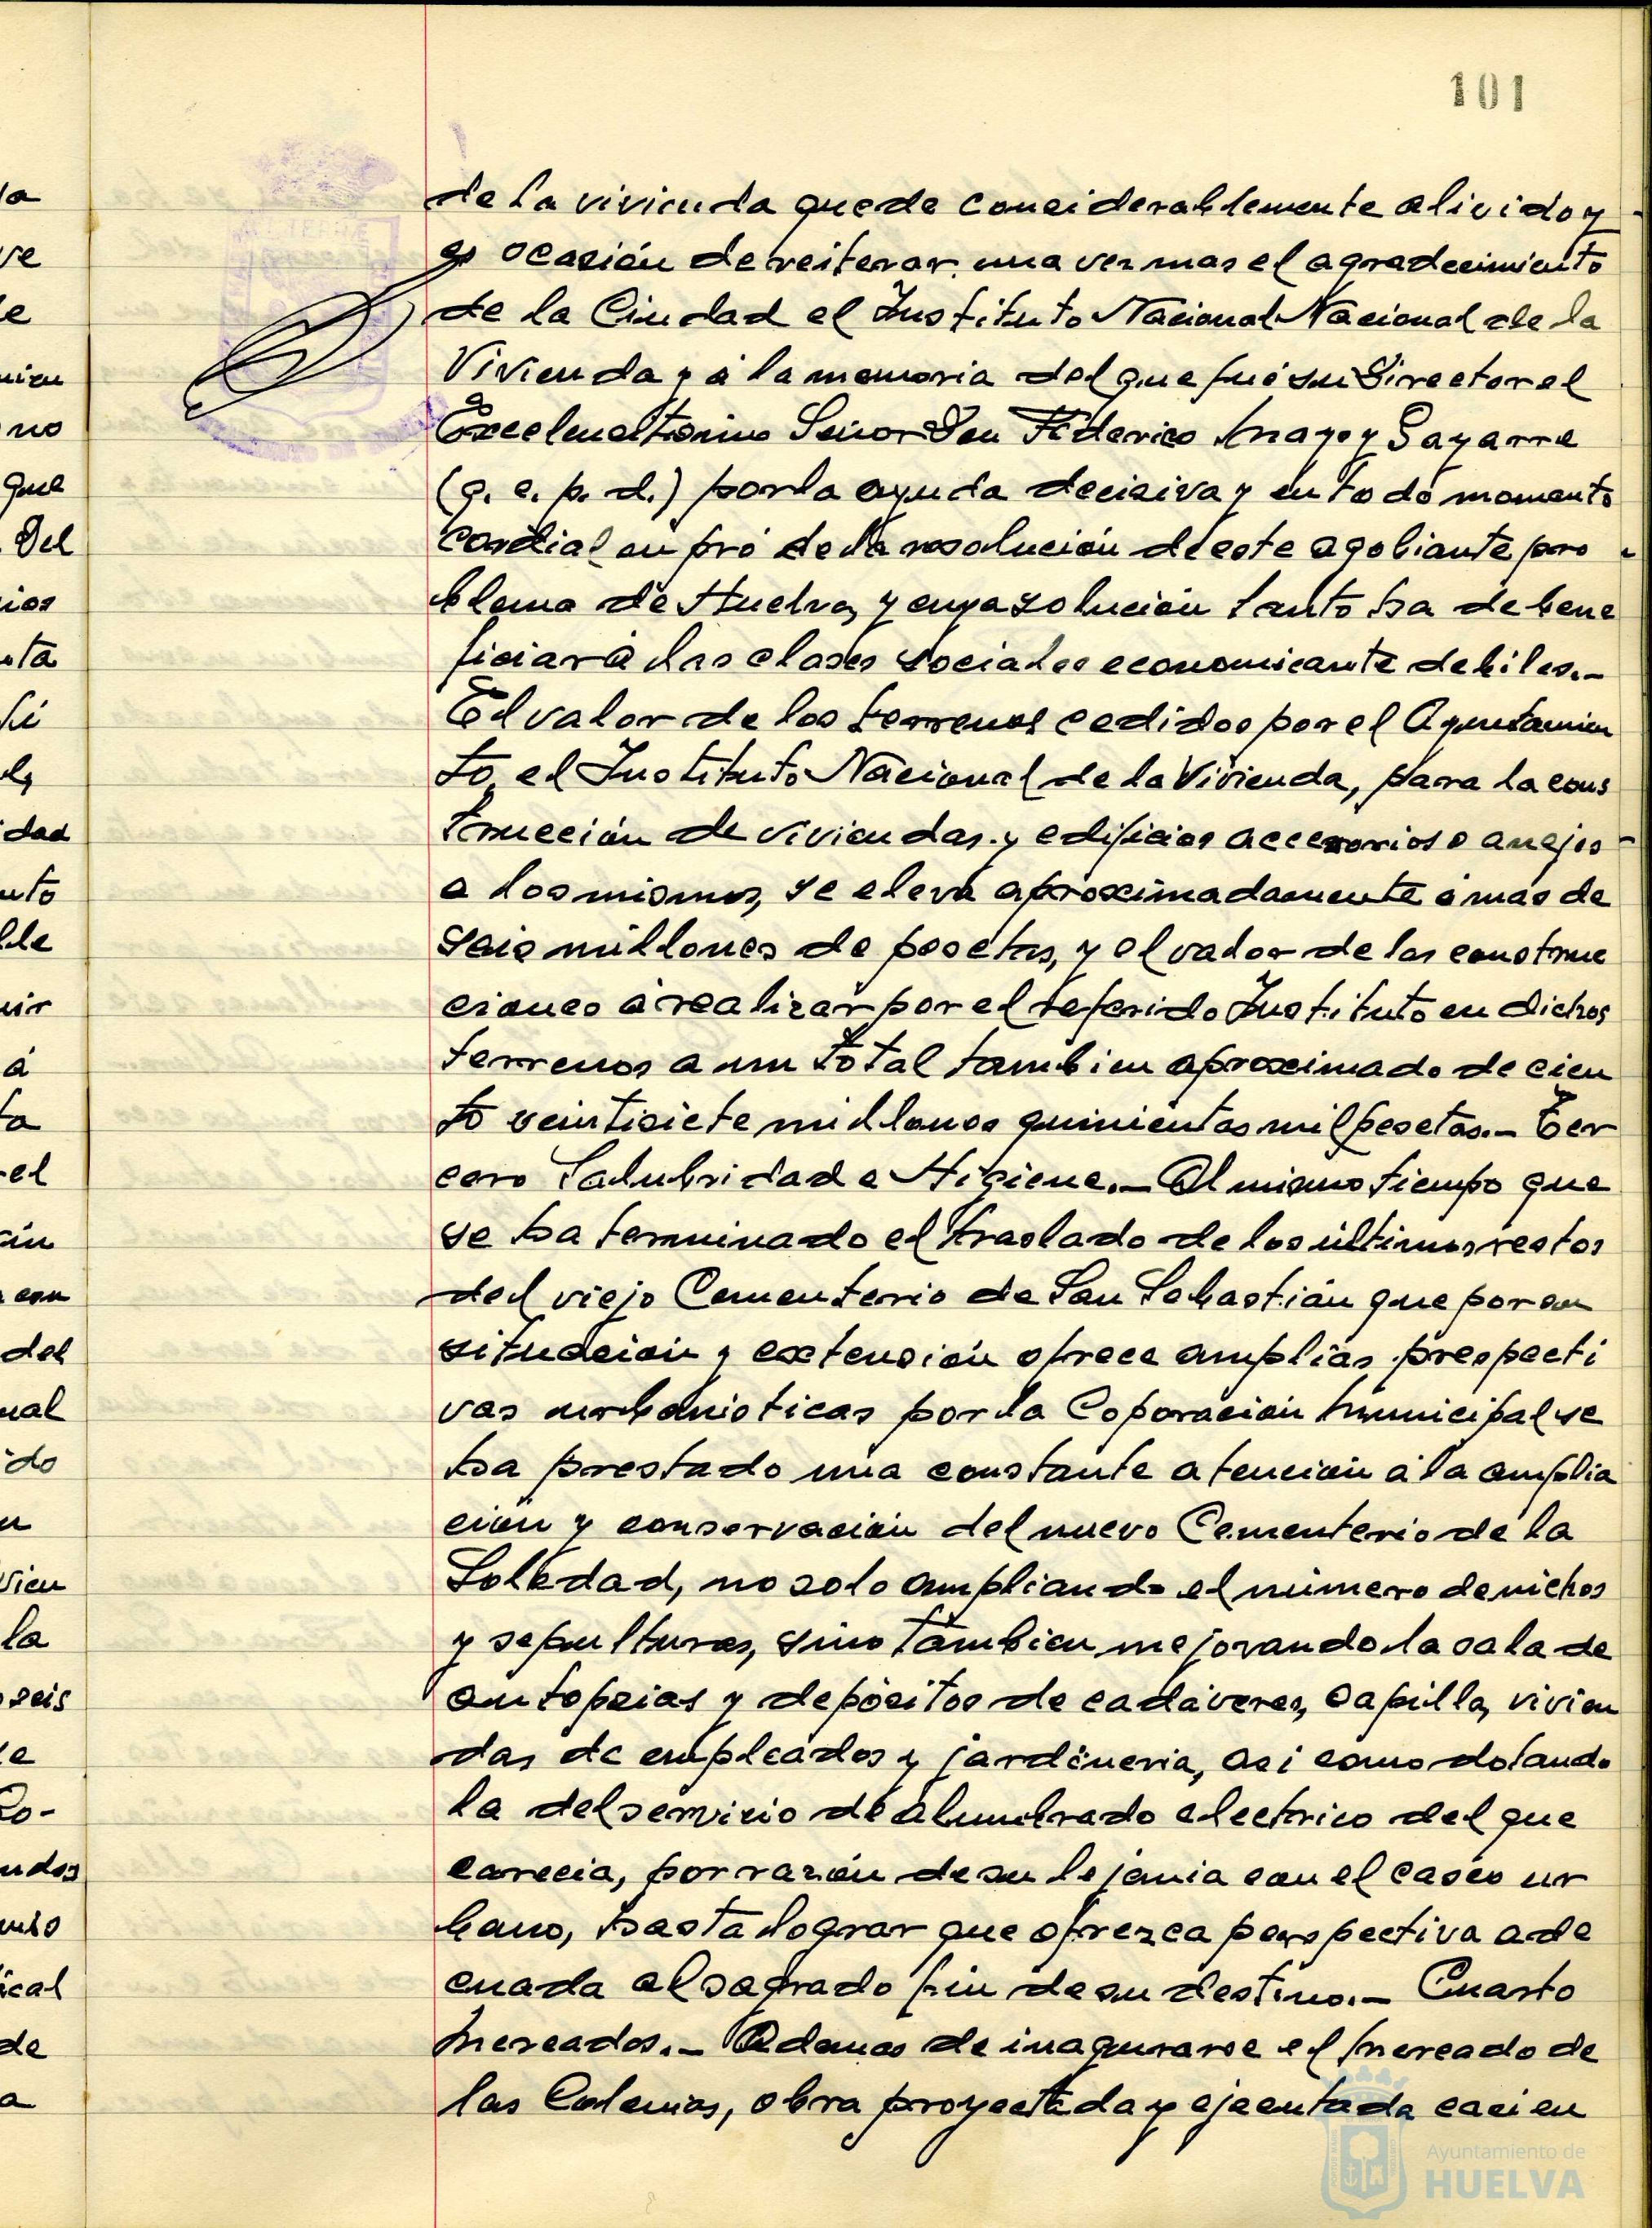 101
de la vivienda quede considerablemente alivido y
es ocasión de reiterar una vez mas el agradecimiento
de la Ciudad el Instituto Nacional Nacional de la
Vivienda y á la memoria del que fué su Director el
Excelentísimo Señor Don Federico Mayo y Gayarre
(q. e. p. d.) por la ayuda decisiva y en todo momento
cordial en pró de la resolución de este agobiante pro
blema de Huelva, y cuya solución tanto ha de bene
ficiar á las clases sociales economicante debiles.-
El valor de los terrenos cedidos por el Ayuntamien
to el Instituto Nacional de la Vivienda, para la cons
trucción de viviendas y edificios accesorios o anejos
a los mismos, se eleva aproximadamente á mas de
seis millones de pesetas, y el valor de las construc
ciones á realizar por el referido Instituto en dichos
terrenos a un total tambien aproximado de cien
to veintisiete millones quinientas mil pesetas.- Ter
cero Salubridad e Higiene.- Al mismo tiempo que
se ha terminado el traslado de los últimos restos
del viejo Cementerio de San Sebastián que por su
situación y extensión ofrece amplias prespecti
vas urbanisticas por la Coporación Municipal se
ha prestado una constante atención á la amplia
ción y conservación del nuevo Cementerio de la
Soledad, no solo ampliando el número de nichos
y sepulturas, sino tambien mejorando la sala de
autopsias y depósitos de cadáveres, capilla, vivien
das de empleados y jardineria, asi como dotando
la del servicio de alumbrado electrico del que
carecia, por razón de su lejania con el casco ur
bano, hasta lograr que ofrezca perspectiva ade
cuada al sagrado fin de su destino.- Cuarto
Mercados.- Ademas de inagurarse el Mercado de
las Colonias, obra proyectada y ejecutada casi en
Ayuntamiento de
HUELVA